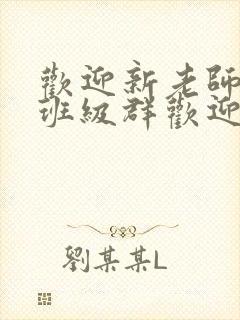 歡迎新老師
班級群歡迎
劉某某L